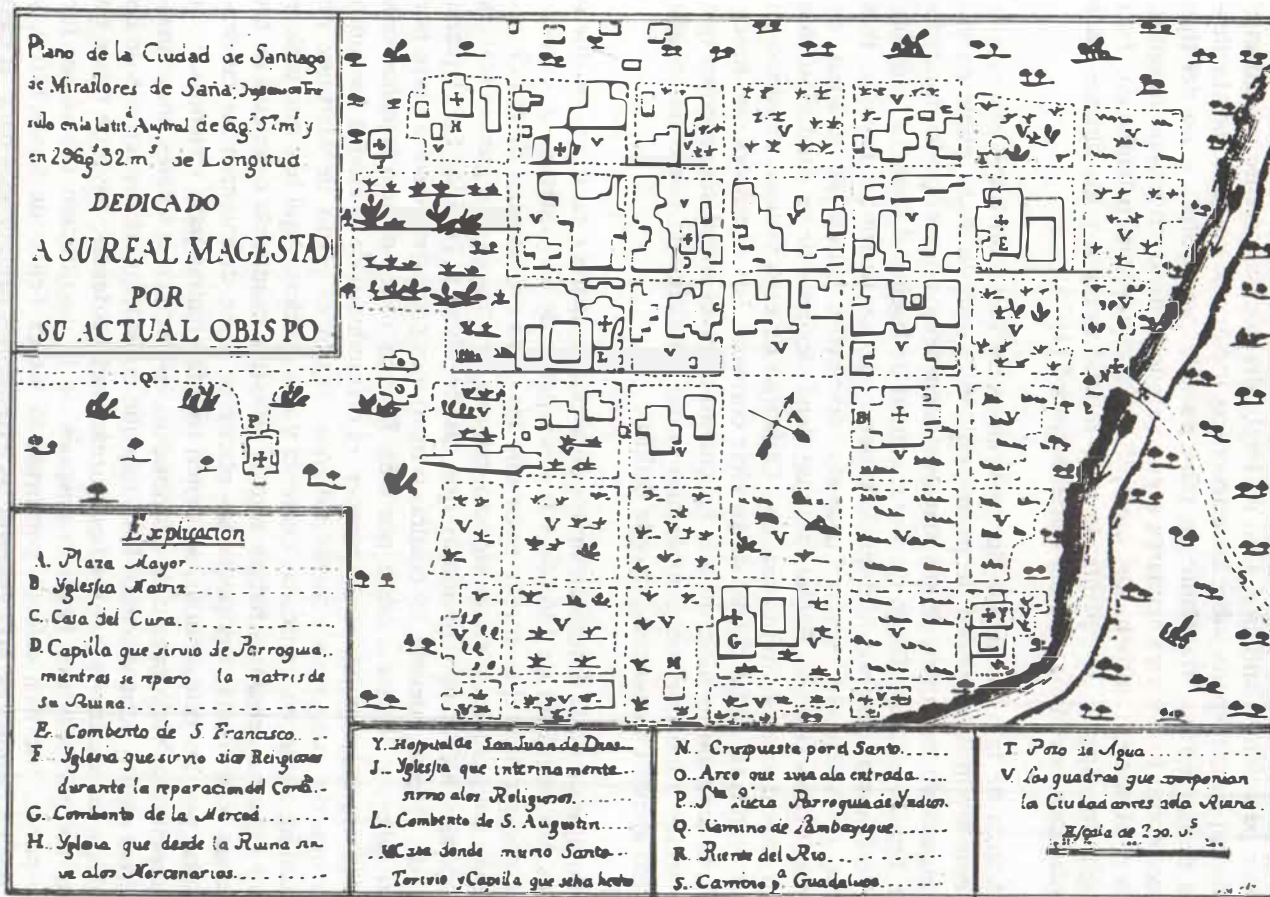 Plano de la Ciudad de Santiago
de Miraflores de Saña;
sulo en la Latit.d Austral de 6g.s 57m.s y
en 296g.s 32 m.s de Longitud
DEDICADO
A SU REAL MAGESTAD
POR
SU ACTUAL OBISPO
Explicacion
A. Plaza Mayor
B. Yglesia Matriz
C. Casa del Cura
D. Capilla que sirvio de Parroquia,
mientras se reparo la matris de
su Ruina
E. Combento de S. Francisco
F. Yglesia que sirvio alos Religiosos
durante la reparacion del
G. Combento de la Merced
H. Yglesia que desde la Ruina sir
ve alos Mercenarios
Y. Hospital de San Juan de Dios
J. Yglesia que interinamente
sirvio alos Religiosos
L. Combento de S. Augustin
M Casa donde murio Santo
Torivio y Capilla que seha hecho
N. Cruz puesta por el Santo
O. Arco que avia ala entrada
P. Sta Lucia Parroquia de Yndios
Q. Camino de Lambayeque
R. Puente del Rio
S. Camino p.a Guadalupe
T. Pozo de Agua
V. Las quadras que componian
la Ciudad antes dela Ruina
Escala de 200. v.s